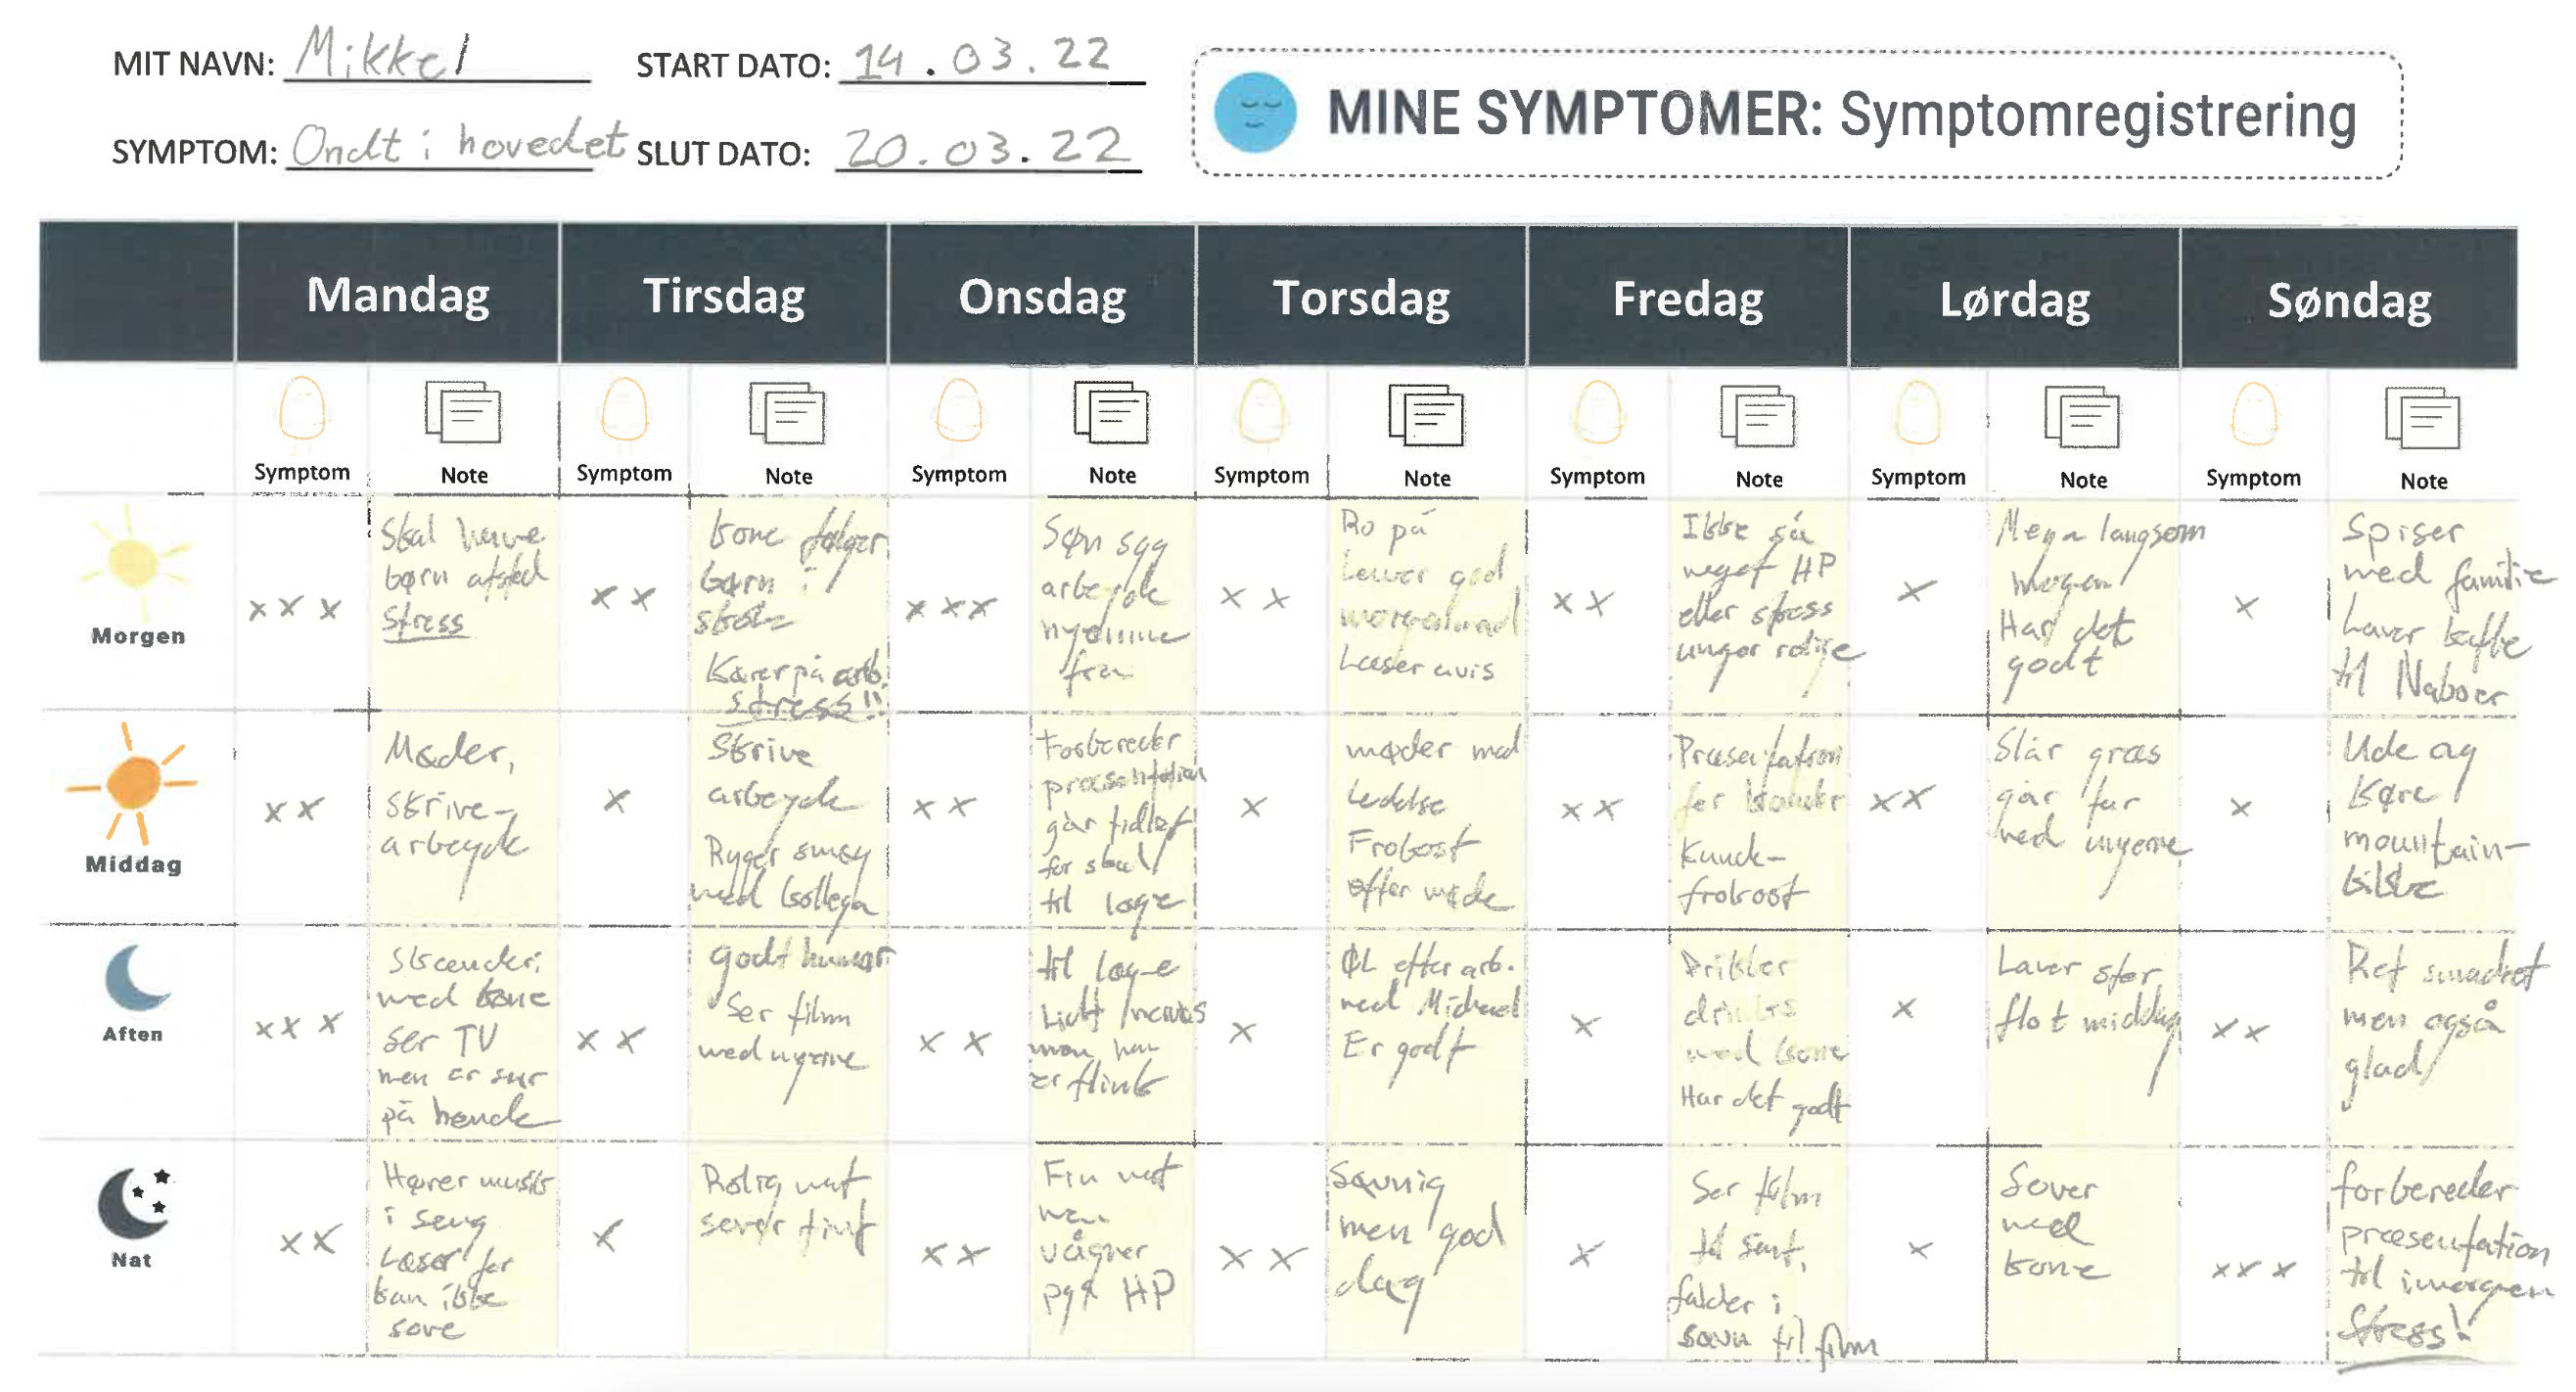 MIT NAVN: Mikkel
START DATO: 14.03.22
SYMPTOM: Ondt i hovedet
SLUT DATO: 20.03.22
MINE SYMPTOMER: Symptomregistrering
Mandag
Tirsdag
Onsdag
Torsdag
Fredag
Lørdag
Søndag
Symptom
Note
Symptom
Note
Symptom
Note
Symptom
Note
Symptom
Note
Symptom
Note
Symptom
Note
Morgen
xxx
Skal have
børn afsted
Stress
xx
Kone følger
børn i
skole
Kører på arb.
Stress!!
xxx
Søn syg
arbejde
hjemme
fra
xx
Ro på
Laver god
morgenmad
Læser avis
xx
Ikke så
meget HP
eller stress
unger rolige
x
Mega langsom
morgen
Har det
godt
x
Spiser
med familie
Laver kaffe
til Naboer
Middag
xx
Møder,
skrive-
arbejde
x
Skrive
arbejde
Ryger smøg
med kollega
xx
Forbereder
præsentation
går tidligt
for skal
til læge!
x
møder med
ledelse
Frokost
efter møde
xx
Præsentation
for kunder
Kunde-
frokost
xx
Slår græs
går tur
med ungerne
x
Ude og
køre
mountain-
bike
Aften
xxx
Skænderi
med kone
ser TV
men er sur
på hende
xx
godt humør
Ser film
med ungerne
xx
til læge
Lidt nervøs
men han
er flink
x
ØL efter arb.
med Michael
Er godt
x
Drikker
drinks
med kone
Har det godt
x
Laver stor
flot middag
xx
Ret smadret
men også
glad
Nat
xx
Hører musik
i seng
Læser for
kan ikke
sove
x
Rolig nat
sover fint
xx
Fin nat
men
vågner
pga HP
xx
Søvnig
men god
dag
x
Ser film
til sent,
falder i
søvn til film
x
Sover
med
kone
xxx
forbereder
præsentation
til imorgen
Stress!